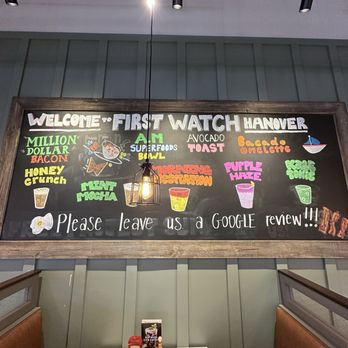 WELCOME TO FIRST WATCH HANOVER
MILLION
DOLLAR
BACON
A.M
SUPERFOODS
BOWL
AVOCADO
TOAST
Bacado
omelette
HONEY
Crunch
MINT
MOCHA
MORNING
MEDITATION
PURPLE
HAZE
KALE
TONIC
Please leave us a GOOGLE review!!!